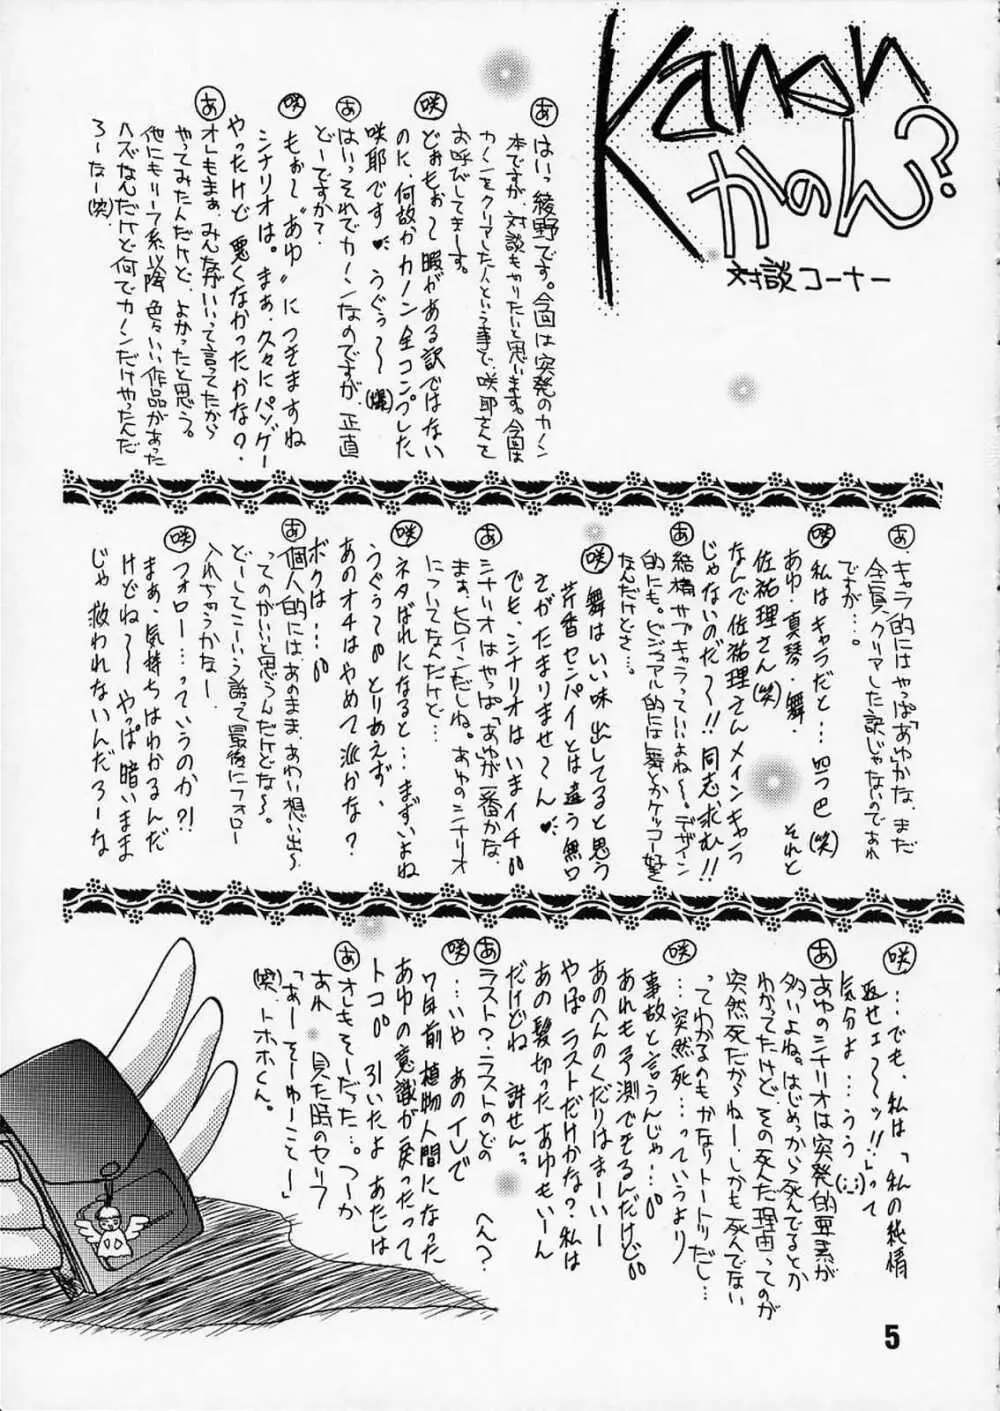 Kanon
かのん?
対談コーナー
あ はいっ綾野です。今回は突発のカノン
本ですが、対談もやりたいと思います。今回は
カノンをクリアした人という事で、咲耶さんを
お呼びしてまーす。
咲 どぉもぉ〜暇がある訳ではない
のに、何故かカノン全コンプした
咲耶です♥うぐぅ〜〜(爆)
あ はいっそれでカノンなのですが、正直
どーですか?
咲 もぉ〜"あゆ"につきますね
シナリオは。まぁ、久々にパソゲー
やったけど悪くなかったかな?
あ オレもまぁ、みんながいいって言ってたから
やってみたんだけど、よかったと思う。
他にもリーフ系以降色々いい作品があった
ハズなんだけど何でカノンだけやったんだ
ろーなー(笑)
あ.キャラ的にはやっぱ「あゆ」かな、まだ
全員クリアした訳じゃないのであれ
ですが…。
咲 私はキャラだと…四つ巴(笑)
あゆ・真琴・舞・それと
佐祐理さん(笑)
なんで佐祐理さんメインキャラ
じゃないのだ〜!!同志求む!!
あ 結構サブキャラっていいよね〜。デザイン
的にも。ビジュアル的には舞とかケッコー好き
なんだけどさ…。
咲 舞はいい味出してると思う
芹香センパイとは違う無口
さがたまりませ〜ん♥
でも、シナリオはいまイチ
あ シナリオはやっぱ「あゆ」が一番かな、
まぁ、ヒロインだしね。あゆのシナリオ
についてなんだけど…
咲 ネタばれになると…まずいよね
うぐぅ〜 とりあえず、
あのオチはやめて欲しかな?
ボクは…。
あ 個人的には、あのまま、あわい想い出〜
ってのがいいと思うんだけどな〜。
どーしてこーいう話って最後にフォロー
入れちゃうかなー
咲 フォロー…っていうのか?!
まぁ、気持ちはわかるんだ
けどね〜〜やっぱ暗いまま
じゃ救われないんだろーな
咲 …でも、私は「私の純情
返せェ〜〜ッ!!」って
気分よ…うう(;;)
あ あゆのシナリオは突発的要素が
多いよね。はじめっから死んでるとか
わかってたけど、その死んだ理由ってのが
突然死だからねー、しかも死んでない
ってわかるのもかなりトートツだし…
咲 …突然死…っていうより
事故と言うんじゃ…
あれも予測できるんだけど
あのへんのくだりはまーいー
やっぱラストだけかな?私は
あの髪切ったあゆもいーん
だけどね 許せん
あ ラスト?ラストのどのへん?
咲 …いや あのイレで
7年前植物人間になった
あゆの意識が戻ったって
トコ 引いたよ あたしは
あ オレもそーだった…。つーか
あれ 見た時のセリフ
「あーそーゆーことー」
(笑)、トホホくん。
5